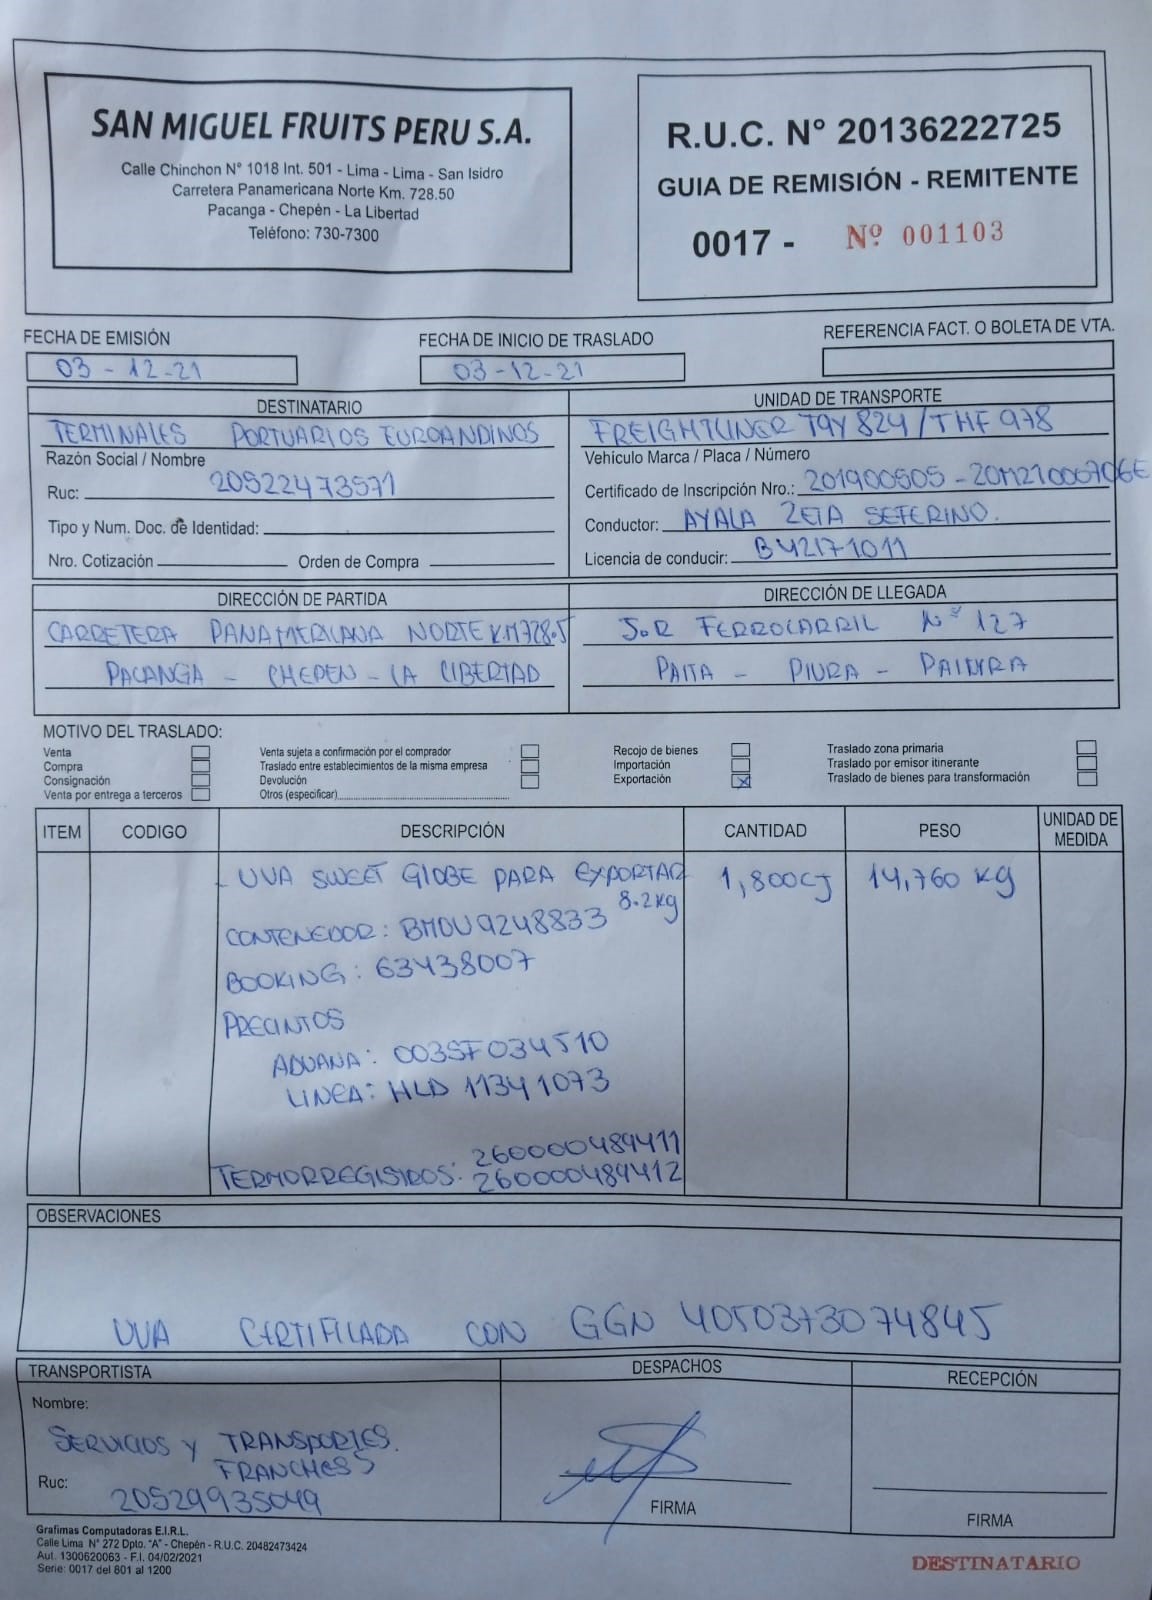 SAN MIGUEL FRUITS PERU S.A.
Calle Chinchon N° 1018 Int. 501 - Lima - Lima - San Isidro
Carretera Panamericana Norte Km. 728.50
Pacanga - Chepén - La Libertad
Teléfono: 730-7300
R.U.C. N° 20136222725
GUIA DE REMISIÓN - REMITENTE
0017 - Nº 001103
FECHA DE EMISIÓN
03 - 12-21
FECHA DE INICIO DE TRASLADO
03-12-21
REFERENCIA FACT. O BOLETA DE VTA.
DESTINATARIO
TERMINALES PORTUARIOS EUROANDINOS
Razón Social / Nombre
Ruc: 20522473571
Tipo y Num. Doc. de Identidad:
Nro. Cotización Orden de Compra
UNIDAD DE TRANSPORTE
FREIGHTLINER T9Y 824 / THF 978
Vehículo Marca / Placa / Número
Certificado de Inscripción Nro.: 201900505 - 20M21006706E
Conductor: AYALA ZETA SEFERINO.
Licencia de conducir: B42171011
DIRECCIÓN DE PARTIDA
CARRETERA PANAMERICANA NORTE KM728.5
PACANGA - CHEPEN - LA LIBERTAD
DIRECCIÓN DE LLEGADA
FERROCARRIL Nº 127
PAITA - PIURA -
MOTIVO DEL TRASLADO:
Venta
Compra
Consignación
Venta por entrega a terceros
Venta sujeta a confirmación por el comprador
Traslado entre establecimientos de la misma empresa
Devolución
Otros (especificar)
Recojo de bienes
Importación
Exportación X
Traslado zona primaria
Traslado por emisor itinerante
Traslado de bienes para transformación
ITEM CODIGO DESCRIPCIÓN CANTIDAD PESO UNIDAD DE MEDIDA
- UVA SWEET GLOBE PARA EXPORTAR 1,800CJ 14,760 Kg
8.2Kg
CONTENEDOR: BMOU9248833
BOOKING: 63438007
PRECINTOS
ADUANA: 003SF034510
LINEA: HLD 11341073
260000489411
TERMORREGISTROS: 260000489412
OBSERVACIONES
UVA CERTIFICADA CON GGN 4050373074845
TRANSPORTISTA
Nombre:
SERVICIOS Y TRANSPORTES.
FRANCHESS
Ruc: 20529935049
DESPACHOS
FIRMA
RECEPCIÓN
FIRMA
Grafimas Computadoras E.I.R.L.
Calle Lima N° 272 Dpto. "A" - Chepén - R.U.C. 20482473424
Aut. 1300620063 - F.I. 04/02/2021
Serie: 0017 del 801 al 1200
DESTINATARIO